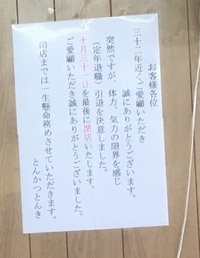 お客様各位
三十二年近くご愛顧いただき
誠にありがとうございます。
突然ですが、体力、気力の限界を感じ
(定年退職)引退を決意しました。
十月三十一日を最後に閉店いたします。
ご愛顧いただき誠にありがとうございました。
閉店までは一生懸命務めさせていただきます。
とんかつとんき